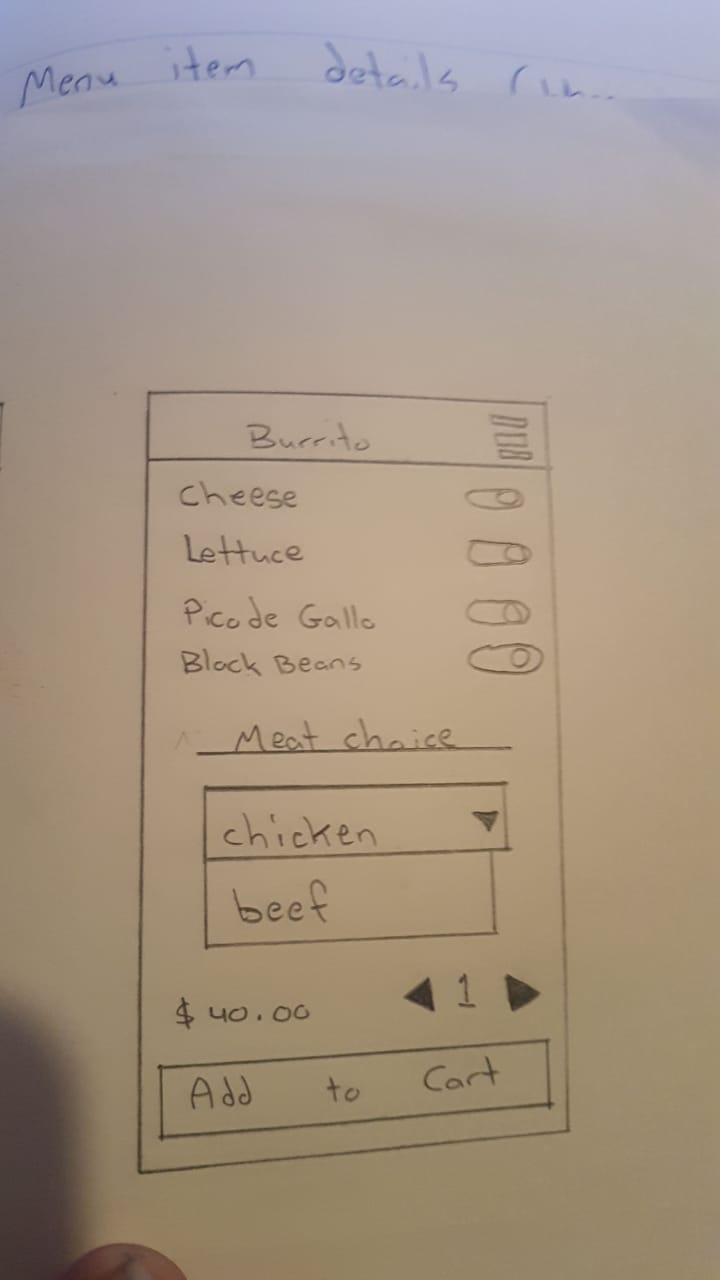 Menu item details
Burrito
Cheese
Lettuce
Pico de Gallo
Black Beans
Meat choice
chicken
beef
$40.00 1
Add to Cart